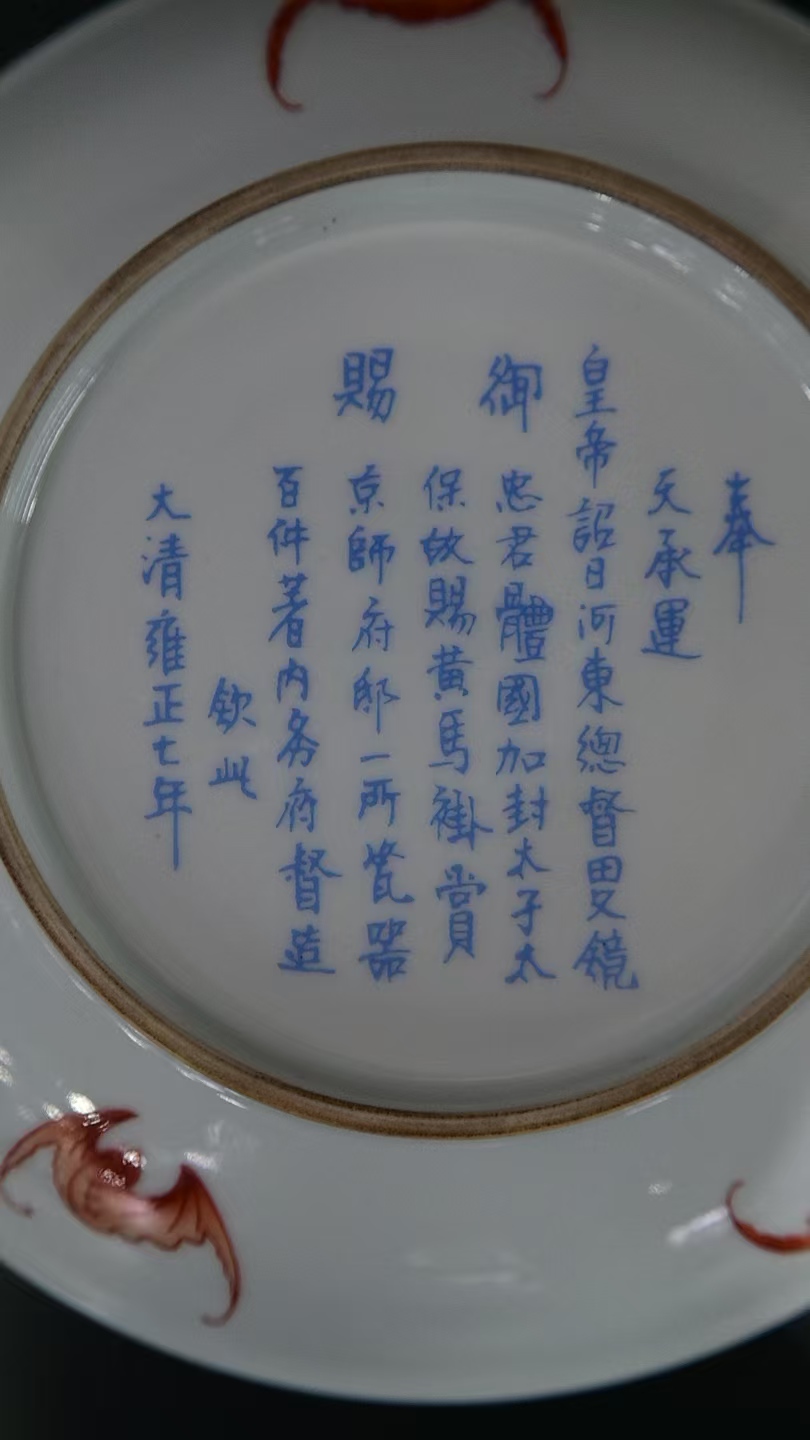 奉
天承運
皇帝詔曰河東總督田文鏡
御忠君體國加封太子太
保故賜黃馬褂賞
賜京師府邸一所瓷器
百件著内务府督造
欽此
大清雍正七年